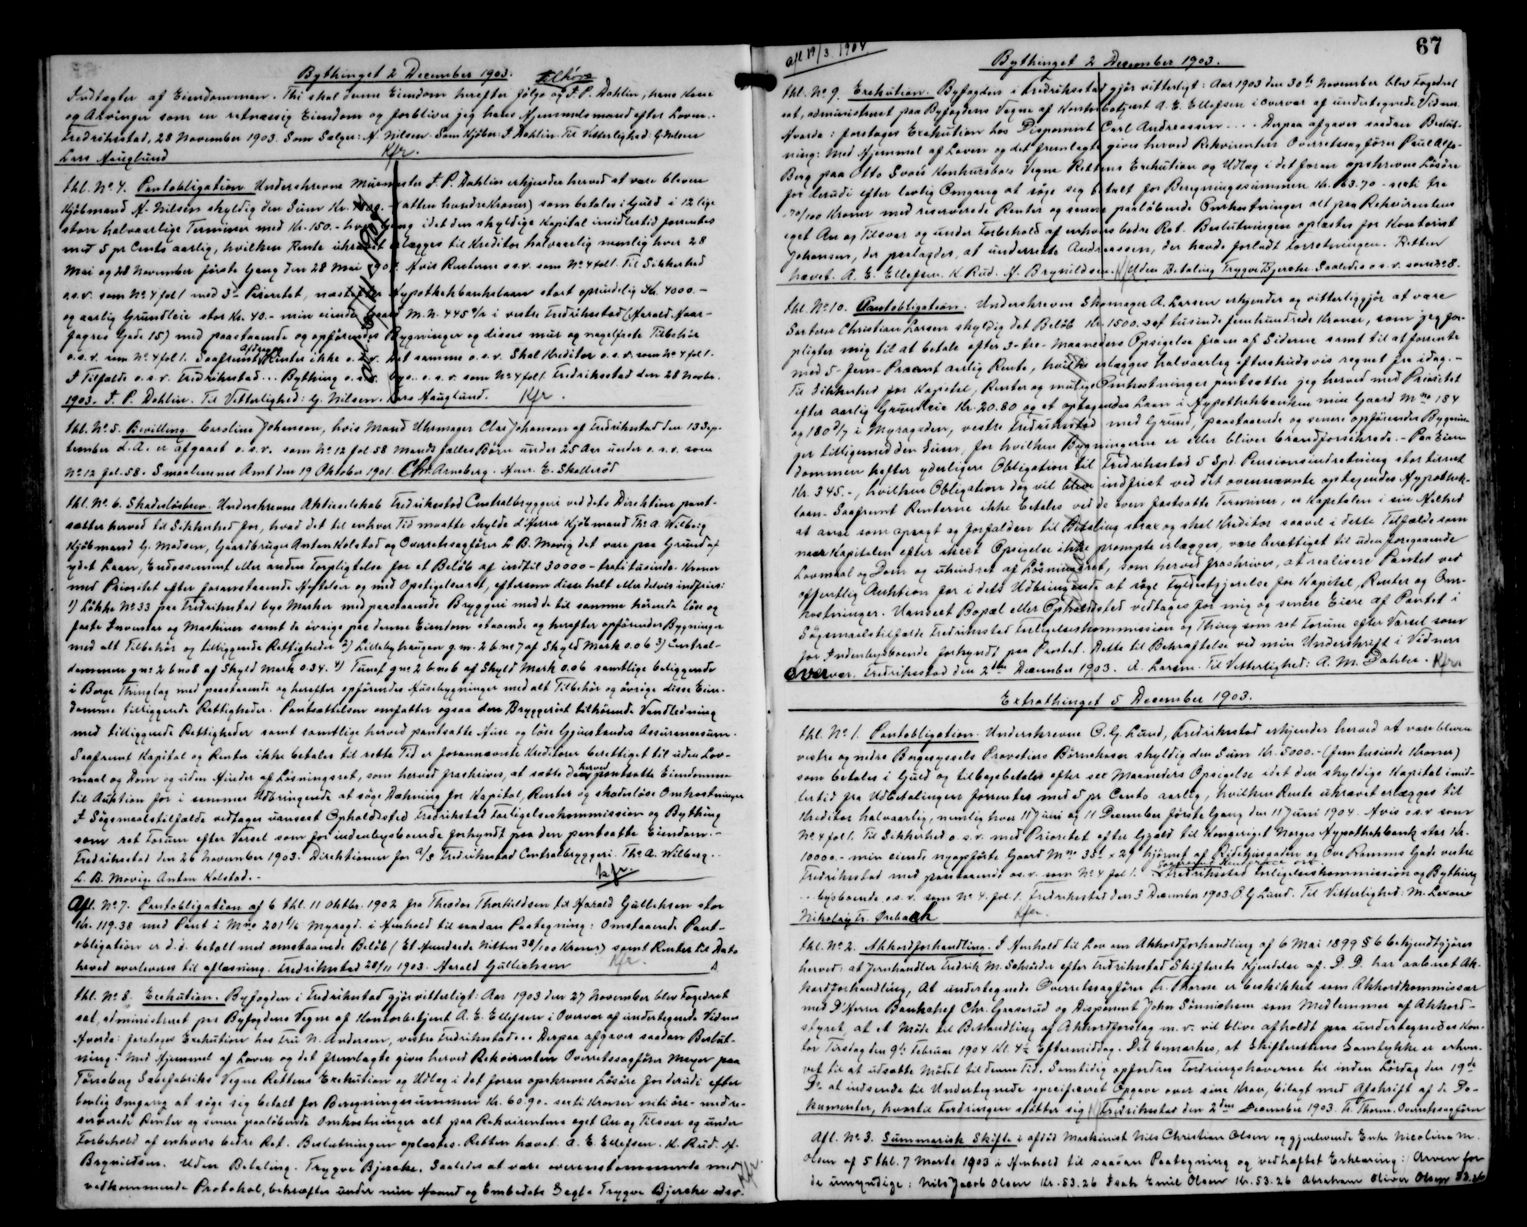 Bythinget 2 December 1903.
Indtægter af Eiendommen. Thi skal denne Eiendom herefter følge og F. P. Dahlin, hans Kone
og Arvinger som en retmæssig Eiendom og forbliver jeg hans Hjemmelsmand efter Loven.
Fredriksstad, 28 November 1903. Som Sælger: N. Nilsen. Som Kjøber: F. Dahlin. Til Vitterlighed: G. Nilsen
Lars Hauglund
Kfr.
thl. No 4. Pantobligation Underskrevne Murmester F. P. Dahlin erkjender herved at være bleven
Kjøbmand N. Nilsen skyldig den Sum Kr. som betales i Guld i 12 lige
store halvaarlige Terminer med Kr. 150.- hver Gang idet den skyldige Kapital imidlertid forrentes
med 5 pr Cento aarlig, hvilken Rente ukrævet erlægges til Kreditor halvaarlig nemlig hver 28
Mai og 28 November første Gang den 28 Mai 1904. Avis Renterne o.s.v. som No 4 fol 1. Til Sikkerhed
o.s.v. som No 4 fol 1 med 3die Prioritet, næstefter Hypothekbanklaan stort oprindelig Kr. 4000.-
og aarlig Grundleie stor Kr. 40.- min eiende Gaard M. N. 445 a/2 i vestre Fredriksstad (Harald Haar-
fagres Gade 15) med paastaaende og opførendes Bygninger og disses mur og nagelfaste Tilbehør
o.s.v. som No 4 fol 1. Saafremt Afdrag og Renter ikke o.s.v. det samme o.s.v. Skal Kreditor o.s.v. som No 4 fol 1.
I Tilfælde o.s.v. Fredriksstad... Bything o.s.v. bys.. o.s.v. som No 4 fol 1. Fredriksstad den 28 Novbr.
1903. F. P. Dahlin. Til Vitterlighed: G. Nilsen. Lars Hauglund.
Kfr.
thl. No 5. Bevilling. Caroline Johanson, hvis Mand Uhrmager Claes Johanson af Fredriksstad den 13 Sep-
tember d. A. er afgaaet o.s.v. som No 12 fol 58 Mands fælles Børn under 25 Aar under o.s.v. som
No 12 fol. 58. Smaalenenes Amt den 19 Oktober 1901. Chr. Arneberg. Anv. E. Skallerød
thl. No. 6. Skadesløsbrev. Underskrevne Aktieselskab Fredriksstad Centralbryggeri ved dets Direktion pant-
sætter herved til Sikkerhed for, hvad det til enhver Tid maatte skylde d'Herrer Kjøbmand Th. A. Wilberg
Kjøbmand G. Madsen, Gaardbruger Anton Kolstad og Overretssagfører L. B. Movig det være paa Grund af
ydet Laan, Endossement eller anden Forpligtelse for et Beløb af indtil 30000.- trettitusinde Kroner
med Prioritet efter foranstaaende Heftelser og med Opsigelsesret, eftersom disse helt eller delvis indfries:
1) Løkke No 33 paa Fredriksstad bys Marker med paastaaende Bryggeri med de til samme hørende løse og
faste Inventar og Maskiner samt de øvrige paa denne Eiendom staaende og herefter opførendes Bygninger
med alt Tilbehør og tilliggende Rettigheder 2) Lillebyhaugen g. n. 2 b. n. 7 af Skyld Mark 0.06 3) Central-
dammen g. n. 2 b. no 8 af Skyld Mark 0.34. 4) Tunef gn: 2 b. no 6 af Skyld Mark 0.06 samtlige beliggende
i Borge Thinglag med paastaaende og herefter opførendes Husebygninger med alt Tilbehør og øvrige disse Eien-
domme tilliggende Rettigheder. Pantsættelsen omfatter ogsaa den Bryggeriet tilhørende Vandledning
med tilliggende Rettigheder samt samtlige herved pantsatte Huse og løse Gjenstandes Assurancesum.
Saafremt Kapital og Renter ikke betales til rette Tid er forannævnte Kreditorer berettiget til uden Lov-
maal og Dom og uden Hinder af Løsningsret, som herved fraskrives, at sætte de herved pantsatte Eiendomme
til Auktion for i sammes Udbringende at søge Dækning for Kapital, Renter og skadesløse Omkostninger
I Søgsmaalstilfælde vedtages uanseet Opholdssted Fredriksstad Forligelseskommission og Bything
som ret Forum efter Varsel som for indenbysboende forkyndt paa den pantsatte Eiendom.-
Fredriksstad den 26 November 1903. Direktionen for A/S Fredriksstad Centralbryggeri. Th. A. Wilberg..
L. B. Movig Anton Kolstad.-
Kfr.
Afl. No 7. Pantobligation af 6 thl. 11 Oktbr. 1902 fra Theodor Thorkildsen til Harald Gulliksen stor
Kr. 119.38 med Pant i M no 201 a/2 Myraqd. i Henhold til saadan Paategning: Omstaaende Pant-
obligation er d. d. betalt med omstaaende Beløb (Et Hundrede Nitten 38/100 Kroner) samt Renter til Dato
herved overleveres til aflæsning. Fredriksstad 28/11 1903. Harald Gulliksen
Kfr.
thl. No 8. Exekution. Byfogden i Fredriksstad gjør vitterligt: Aar 1903 den 27 November blev Fogedret
sat, administreret paa Byfogdens Vegne af Kontorbetjent A. E. Ellefsen i Overvær af undertegnede Vidner
Hvorda: foretoges Exekution hos Fru N. Andersen, vestre Fredriksstad... Derpaa afgaves saadan Beslut-
ning: Med Hjemmel af Loven og det fremlagte gives herved Rekvirenten Overretssagfører Meyer paa
Tønsberg Sæbefabriks Vegne Rettens Exekution og Udlæg i det foran opskrevne Løsøre for derudi efter
lovlig Omgang at søge sig betalt for Beregningssummen Kr. 60.90.- seksti Kroner nitti øre- med re-
serverede Renter og senere paaløbende Omkostninger alt paa Rekvirentens eget An og Tilsvar og under
Forbehold af enhvers bedre Ret. Beslutningen oplæstes. Retten hævet. A. E. Ellefsen. K. Rud. N.
Brynildsen. Uden Betaling. Trygve Bjerche. Saaledes at være overensstemmende med
vedkommende Protokol, bekræftes under min Haand og Embedets Segl. Trygve Bjerche
Kfr.
67
afl 19/3 1904
Bythinget 2 December 1903.
thl. No. 9. Exekution. Byfogden i Fredriksstad gjør vitterligt: Aar 1903 den 30te November blev Fogedret
sat, administreret paa Byfogdens Vegne af Kontorbetjent A. E. Ellefsen i Overvær af undertegnede Vidner
Hvorda: foretoges Exekution hos Disponent Carl Andreassen.... Derpaa afgaves saadan Beslut-
ning: Med Hjemmel af Loven og det fremlagte gives herved Rekvirenten Overretssagfører Paul
Berg paa Otto Konkursbos Vegne Rettens Exekution og Udlæg i det foran opskrevne Løsøre
for derudi efter lovlig Omgang at søge sig betalt for Beregningssummen Kr. 63.70 - seksti tre
70/100 Kroner med reserverede Renter og senere paaløbende Omkostninger alt paa Rekvirentens
eget An og Tilsvar og under Forbehold af enhvers bedre Ret. Beslutningen oplæstes for Kontorist
Johansen, der paalagdes, at underrette Andreassen, der havde forladt Forretningen. Retten
hævet. A. E. Ellefsen. K. Rud. N. Brynildsen. Uden Betaling Trygve Bjerche. Saaledes o.s.v. som No 8.
thl. No. 10. Pantobligation. Underskrevne Skomager A. Larsen erkjender og vitterliggjør at være
Sartoren Christian Larsen skyldig det Beløb Kr. 1500. - et tusinde femhundrede Kroner, som jeg for-
pligter mig til at betale efter 3- tre- Maaneders Opsigelse fra en af Siderne samt til at forrente
med 5- fem- Procent aarlig Rente, hvilke erlægges halvaarlig efterskudsvis regnet fra idag.-
Til Sikkerhed for Kapital, Renter og mulige Omkostninger pantsætter jeg herved med Prioritet
efter aarlig Grundleie Kr. 20.80 og et optagendes Laan i Hypothekbanken min Gaard M no 184
og 180 d/7 i Myragden, vestre Fredriksstad med Grund, paastaaende og senere opførendes Bygnin-
ger tilligemed den Sum, for hvilken Bygningerne er eller bliver brandforsikrede.- Paa Eien-
dommen hefter yderligere Obligation til Fredriksstad 5 Spd. Pensionsindretning stor tilrest
Kr. 345.-, hvilken Obligation dog vil blive indfriet ved det ovennævnte optagendes Hypothek-
laan. Saafremt Renterne ikke betales ved de oven fastsatte Terminer, er Kapitalen i sin Helhed
at anse som opsagt og forfalden til Betaling strax og skal Kreditor saavel i dette Tilfælde som
naar Kapitalen efter skeet Opsigelse ikke prompte erlægges, være berettiget til uden foregaaende
Lovmaal og Dom og uhindret af Løsningsret, som herved fraskrives, at realisere Pantet ved
offentlig Auktion for i dets Udbringende at søge Fyldestgjørelse for Kapital, Renter og Om-
kostninger. Uanseet Bopæl eller Opholdssted vedtages for mig og senere Eiere af Pantet i
Søgsmaalstilfælde Fredriksstad Forligelseskommission og Thing som ret Forum efter Varsel som
for Indenbysboende forkyndt paa Pantet. Dette til Bekræftelse ved min Underskrift i Vidners
Overvær. Fredriksstad den 2den December 1903. A. Larsen. Til Vitterlighed: A. M. Dahler.
Kfr.
Extrathinget 5 December 1903.
thl. No 1. Pantobligation. Underskrevne O. G. Lund, Fredriksstad erkjender herved at være bleven
vestre og nedre Borgesyssels Provstiers Børnehuse skyldig den Sum Kr. 5000.- (femtusinde Kroner)
som betales i Guld og tilbagebetales efter sex Maaneders Opsigelse idet den skyldige Kapital imid-
lertid fra Udbetalingen forrentes med 5 pr Cento aarlig, hvilken Rente ukrævet erlægges til
Kreditor halvaarlig, nemlig hver 11 Juni og 11 December første Gang den 11 Juni 1904. Avis o.s.v. som
No 4 fol 1. Til Sikkerhed o.s.v. med Prioritet efter Gjæld til Kongeriget Norges Hypothekbank stor Kr.
10000.- min eiende nyopførte Gaard M no 35 a x 29 hjørnet af Ridehusgaden og Ove Ramms Gade vestre
Fredriksstad med paastaaende o.s.v. som No 4 fol 1. Fredriksstad Forligelseskommission og Bything
... bysboende o.s.v. som No. 4. fol. 1. Fredriksstad den 3 December 1903. O. G. Lund. Til Vitterlighed: M. Lexow
Nikolay Fr. Orebach
Kfr.
thl. No 2. Akkordforhandling. I Henhold til Lov om Akkordforhandling af 6 Mai 1899 § 6 bekjendtgjøres
herved: at Jernhandler Fredrik M. Schrøder efter Fredriksstad Skifterets Kjendelse af. D. D. har aabnet Ak-
kordforhandling, At undertegnede Overretssagfører Fr. Thorne er beskikket som Akkordkommissær
med D'Herrer Bankchef Chr. Graarud og Disponent John Sønnichsen som Medlemmer af Akkord-
styret, at et Møde til Behandling af Akkordforslag m. v. vil blive afholdt paa undertegnedes Kon-
tor Tirsdag den 9de Februar 1904 Kl. 4 1/2 Eftermiddag. Det bemærkes, at Skifterettens Samtykke er erhver-
vet til at udsætte Mødet til denne Tid. Samtidig opfordres Fordringshaverne til inden Lørdag den 19de
Ds. at indsende til Undertegnede specificeret Opgave over sine Krav, bilagt med Afskrift af de Do-
kumenter, hvortil Fordringen støtter sig. Fredriksstad den 2den December 1903. Fr. Thorne. Overretssagfører
Afl. No. 3. Summarisk Skifte i afdød Maskinist Nils Christian Olsen og gjenlevende Enke Nicoline M.
Olsen af 5 thl. 7 Marts 1903 i Henhold til saadan Paategning og vedhæftet Erklæring: Arven for
de umyndige: Nils Jacob Olsen Kr. 53.26 Isak Emil Olsen Kr. 53.26 Abraham Oliver Olsen 53.26